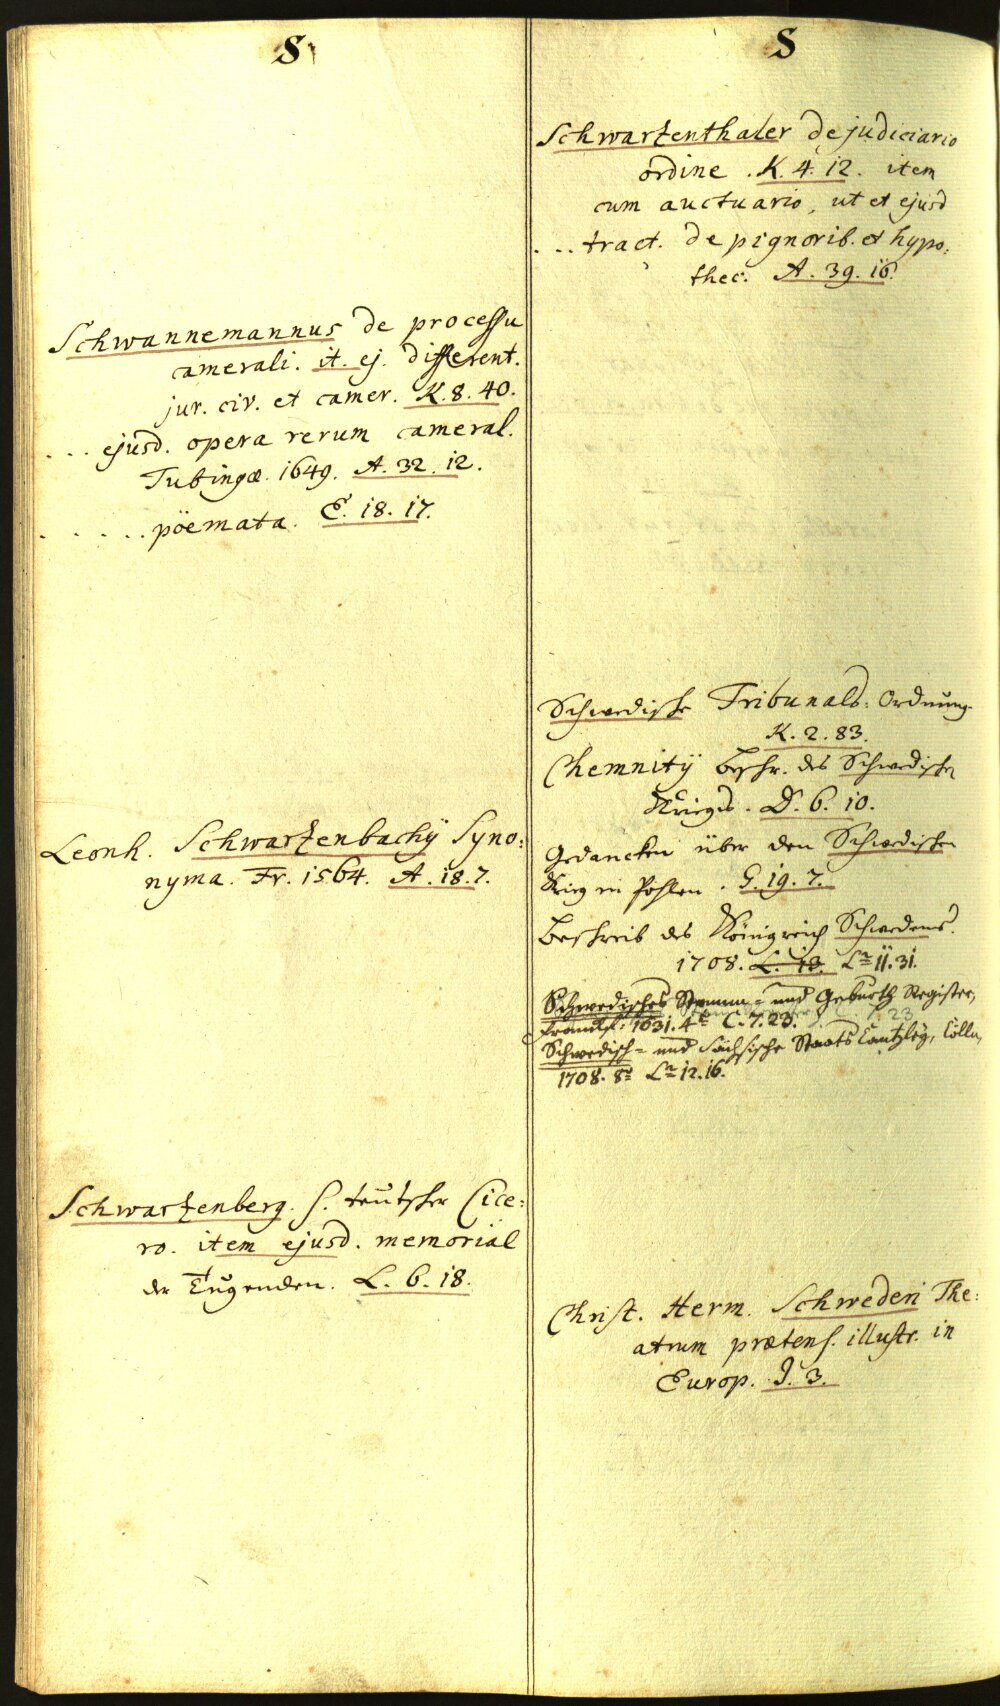 S
Schwannemannus de processu
camerali. it. ej. different.
jur. civ. et camer. K. 8. 40.
. . . ejusd. opera rerum cameral.
Tubingæ. 1649. A. 32. 12.
. . . . . pöemata. E. 18. 17.
Leonh. Schwartzenbachÿ Syno:
nyma. Fr. 1564. A. 18. 7.
Schwartzenberg. s. teutscher Cice:
ro. item ejusd. memorial
der Tugenden. L. 6. 18.
S
Schwartzenthaler de judiciario
ordine . K. 4. 12. item
cum auctuario, ut et ejusd
. . . tract. de pignorib. et hypo:
thec. A. 39. 16.
Schwedische Tribunals: Ordnung.
K. 2. 83.
Chemnitÿ beschr. des Schwedischen
Krieges. D. 6. 10.
Gedancken über den Schwedischen
Krieg in Pohlen. G. 19. 7.
Beschreib des Königreich Schwedens.
1708. L. 13. Lª 11. 31.
Schwedisches Stamm- und Geburth Register,
Franckf: 1631. 4º C. 7. 23.
Schwedisch- und Sächsische Staats Cantzley, Cölln,
1708. 8º Lª 12. 16.
Christ. Herm. Schwederi The:
atrum prætens. illustr. in
Europ. J. 3.